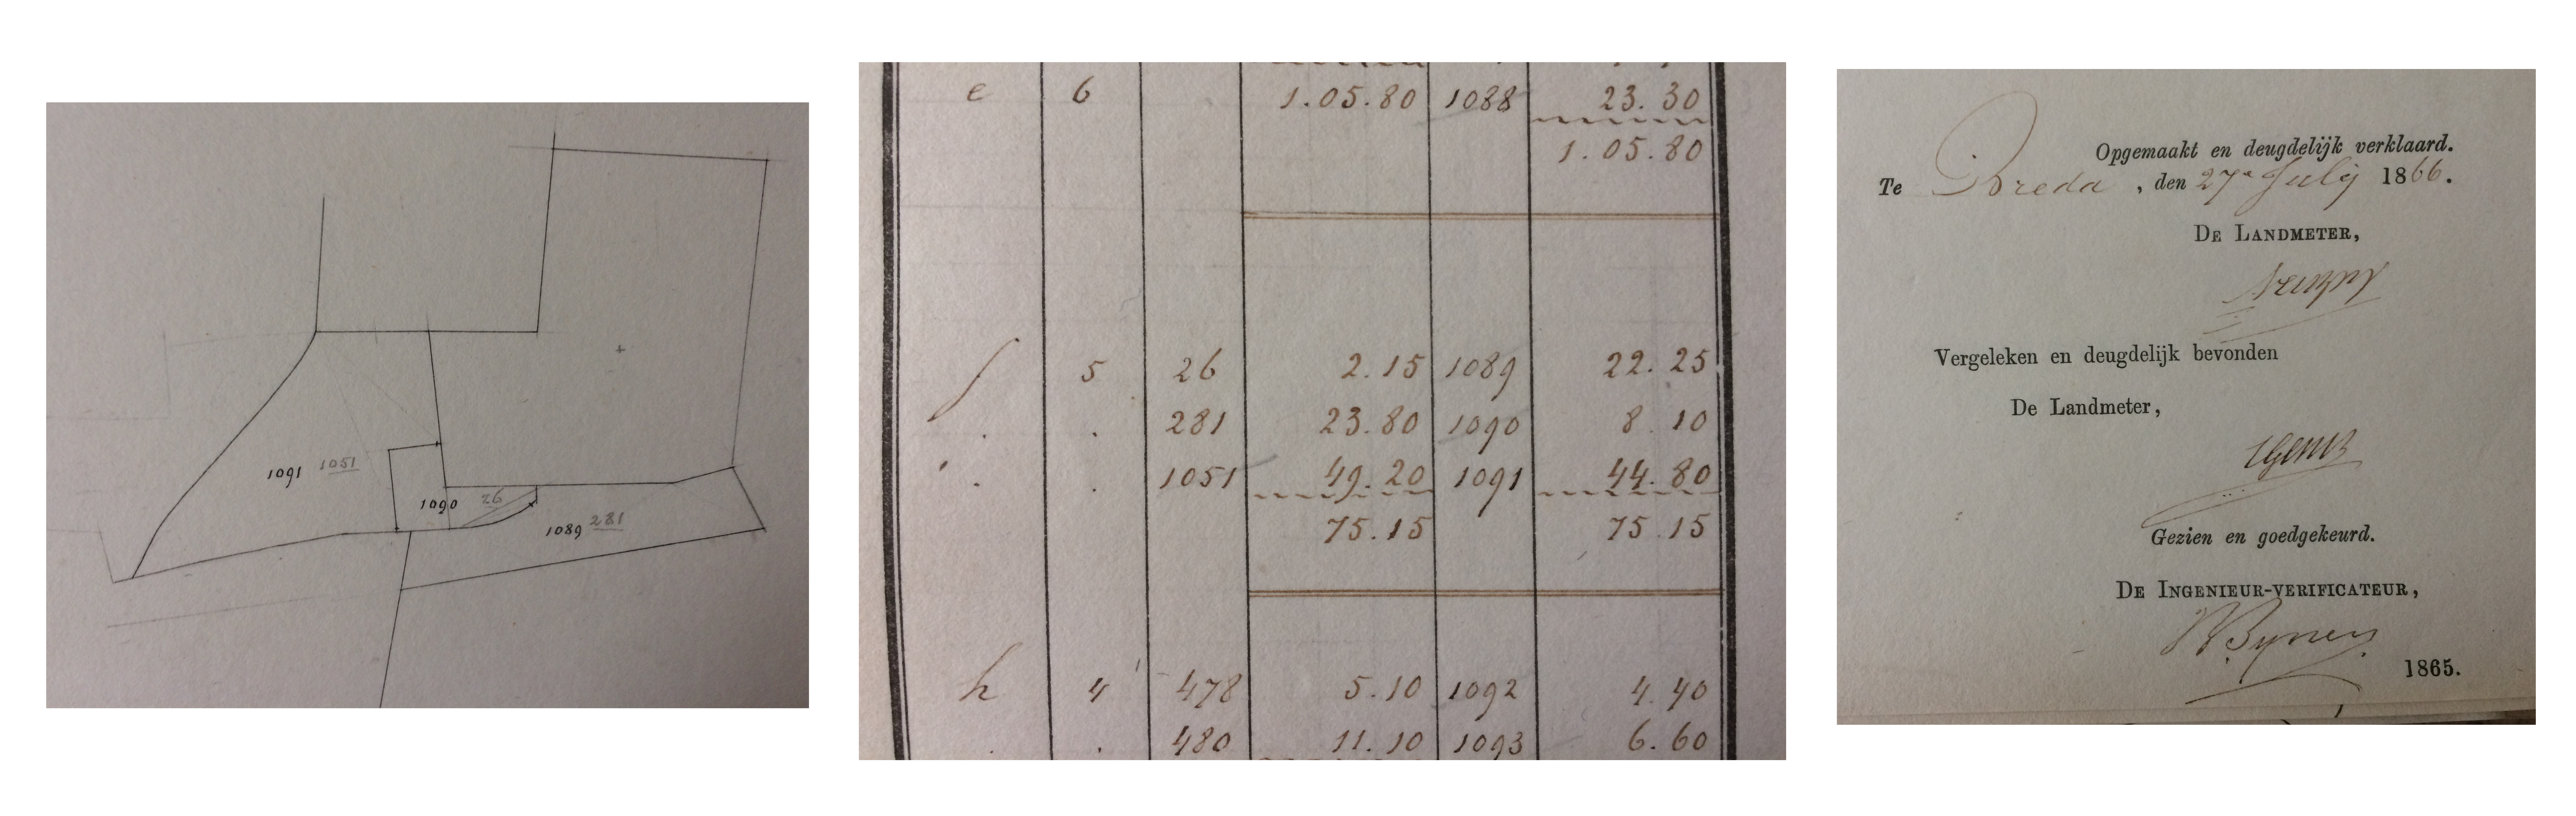 1091 1051
1090 26
1089 281
e 6 1.05.80 1088 23.30
1.05.80
f 5 26 2.15 1089 22.25
. . 281 23.80 1090 8.10
. . 1051 49.20 1091 44.80
75.15 75.15
h 4 478 5.10 1092 4.40
. . 480 11.10 1093 6.60
Opgemaakt en deugdelijk verklaard.
Te Breda, den 27n July 1866.
De Landmeter,
Vergeleken en deugdelijk bevonden
De Landmeter,
Gezien en goedgekeurd.
De Ingenieur-verificateur,
1865.